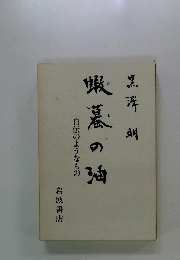 黒澤 明
蝦蟇の油
自伝のようなもの
岩波書店